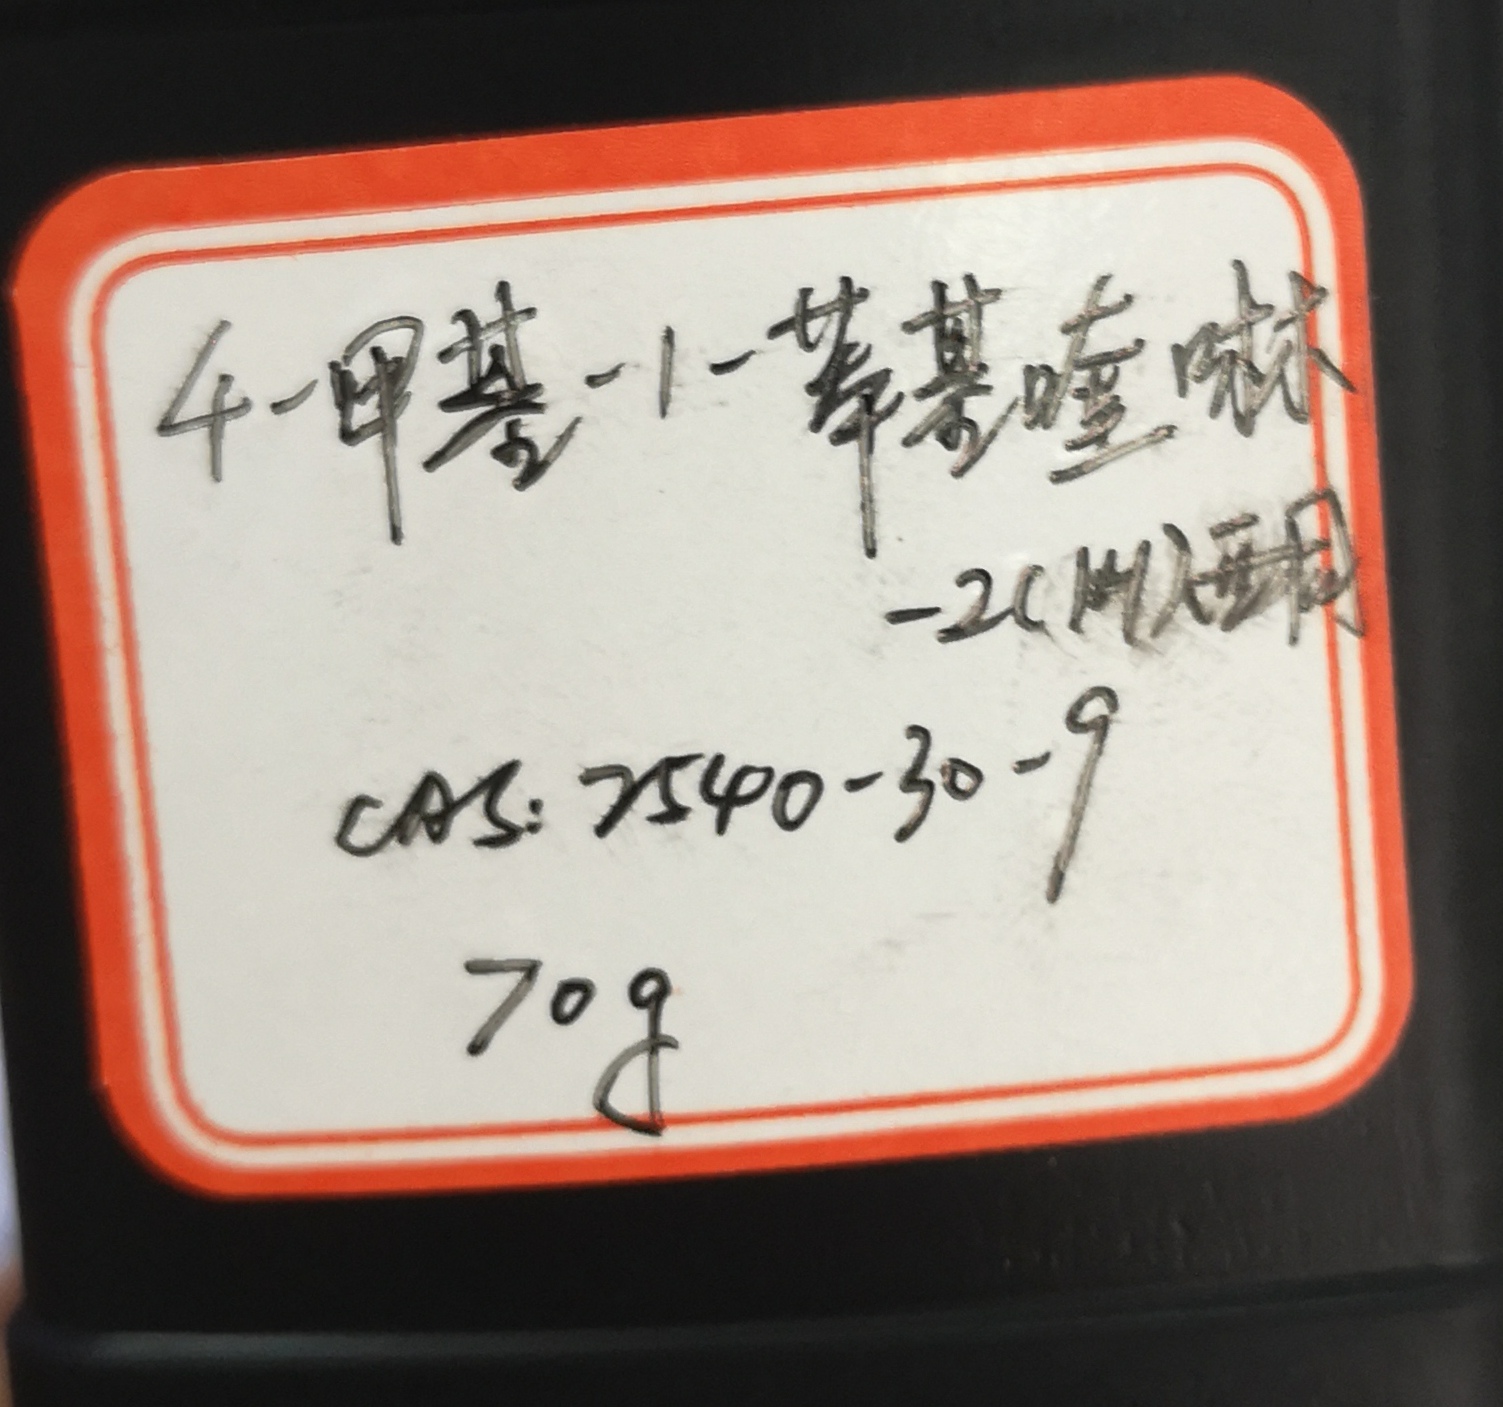 4-甲基-1-苯基喹啉
-2(1H)酮
CAS:2540-30-9
70g